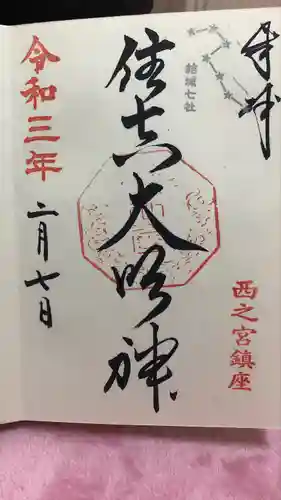 奉拝
結城七社
西之宮鎮座
住吉大明神
令和三年
二月七日